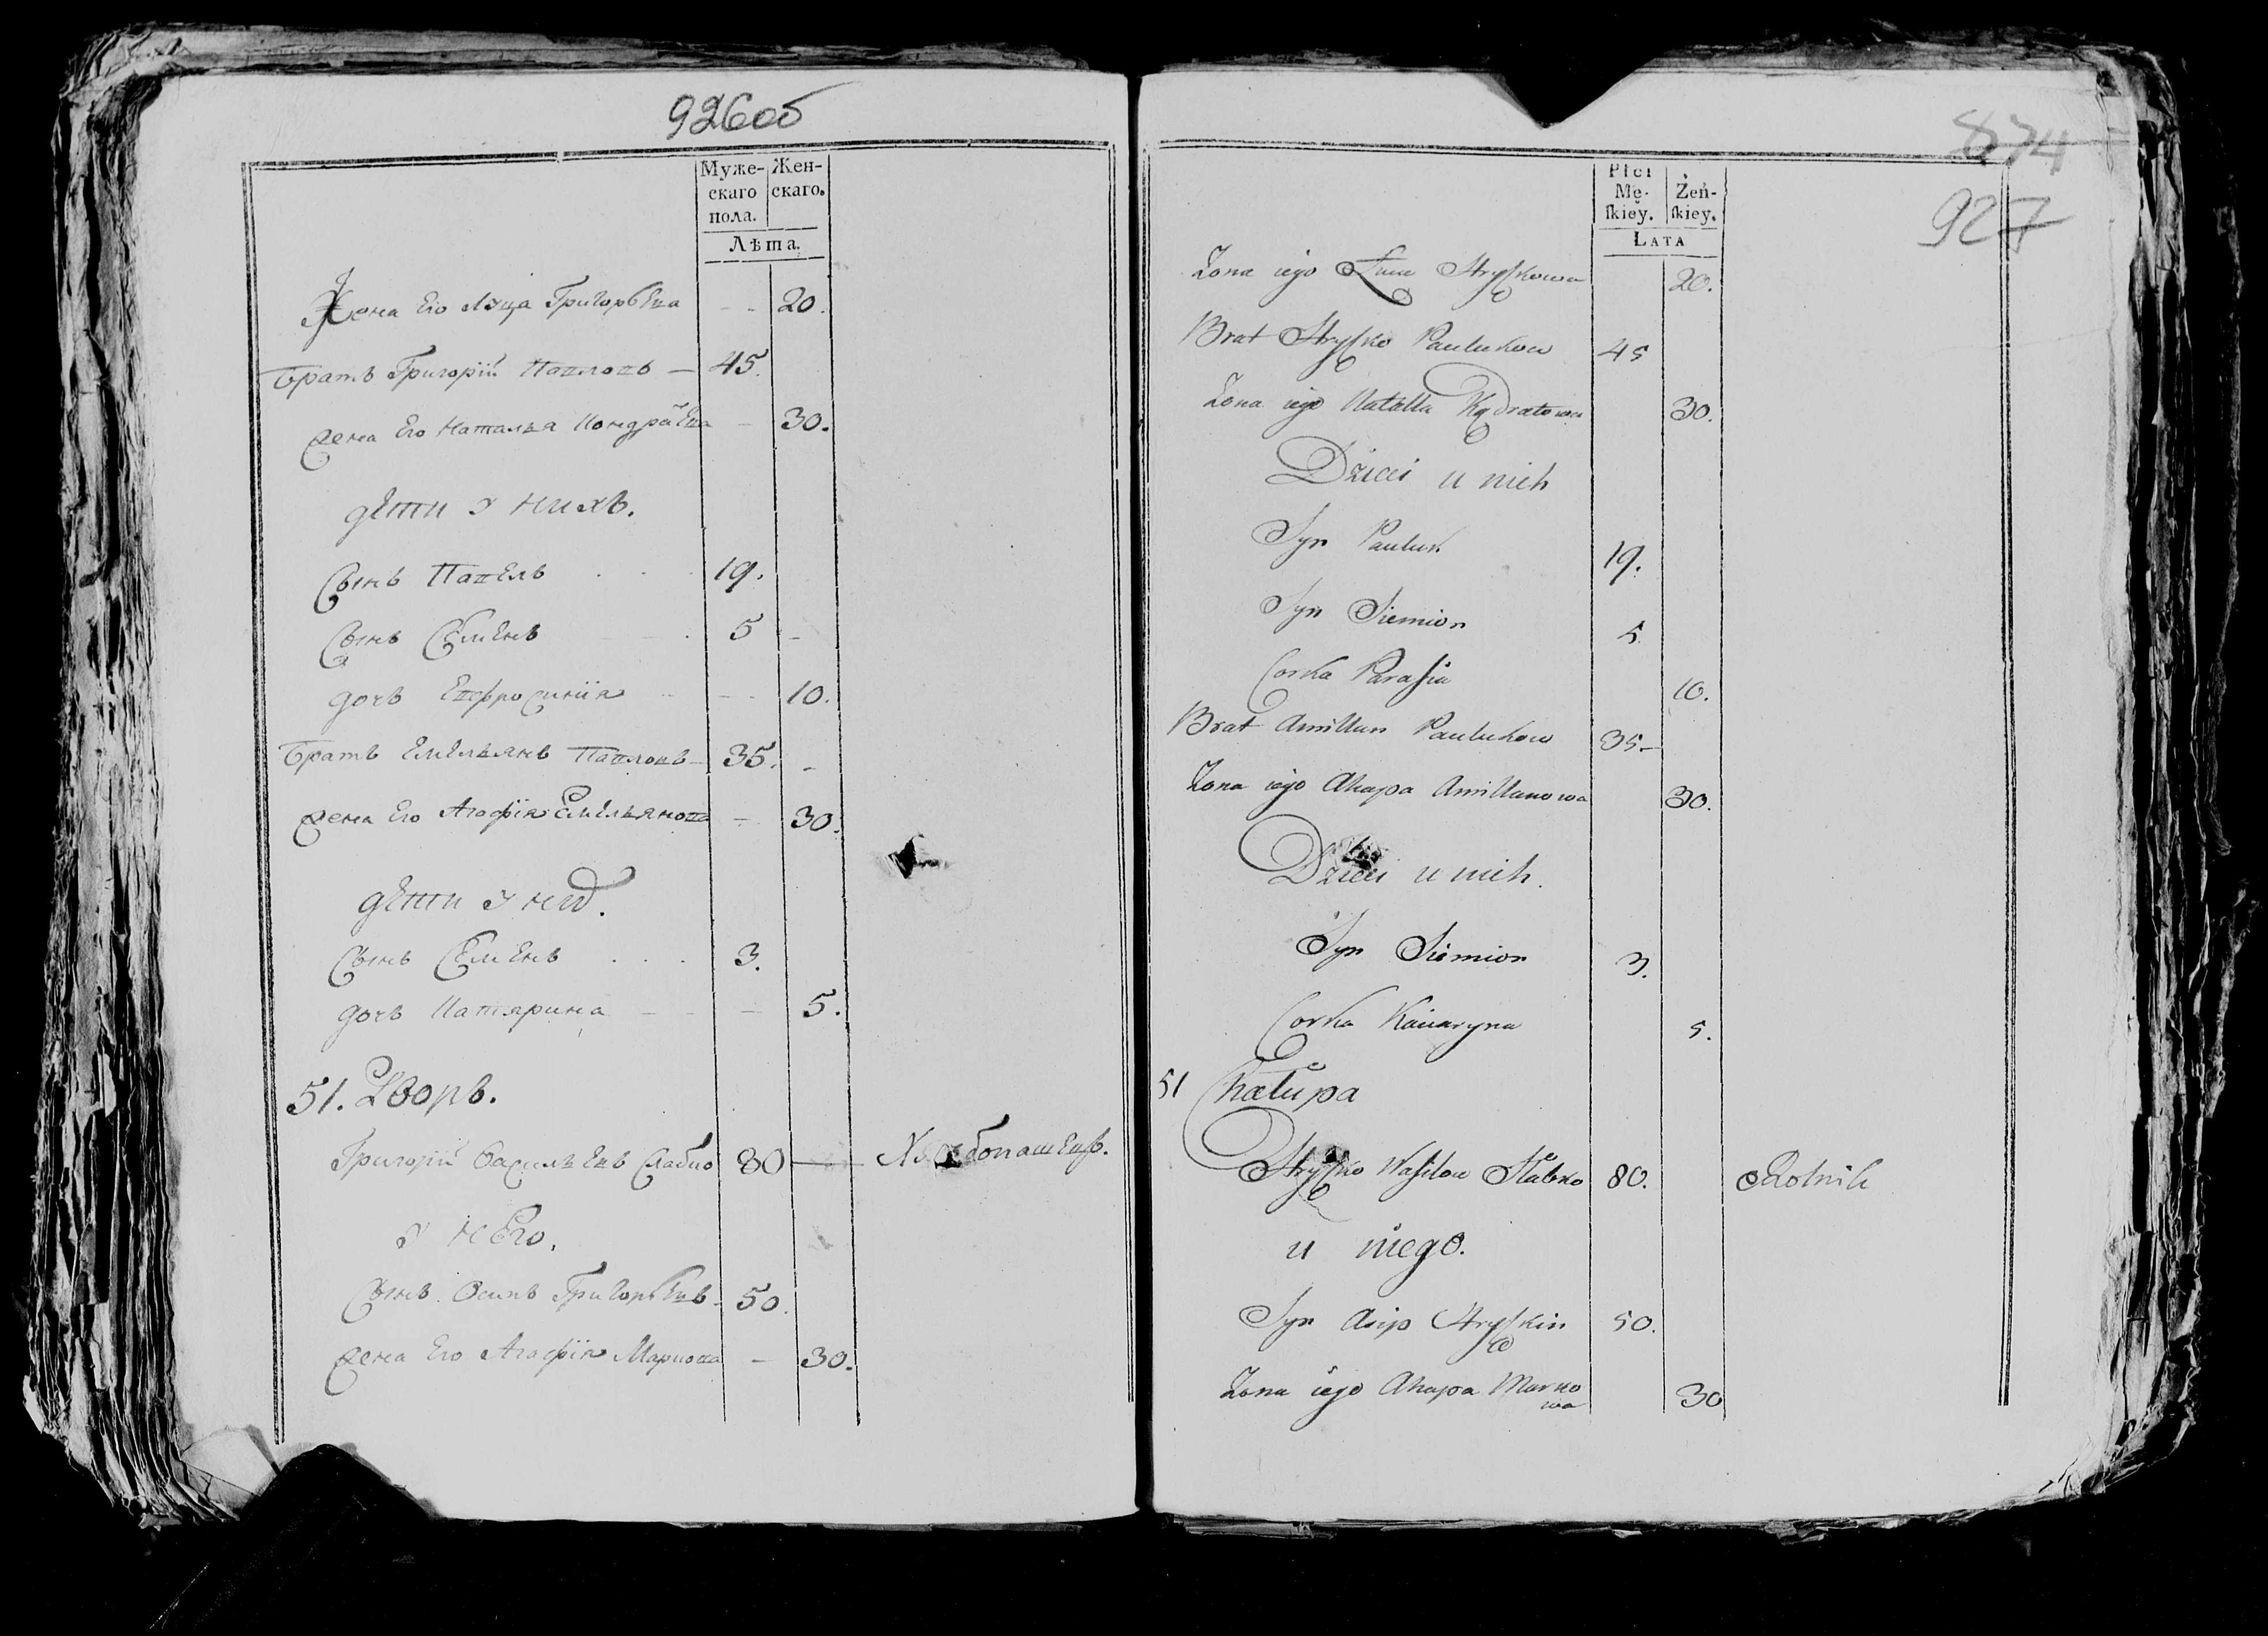 926об
Муже-скаго пола.
Жен-скаго.
Лѣта.
Жена Его Луца Григорьева 20.
Братъ Григорій Павловъ 45.
жена Его Наталья Кондраѣва 30.
дети у нихъ.
Сынъ Павелъ 19.
Сынъ Семенъ 5
дочь Евфросинія 10.
Братъ Емельянъ Павловъ 35.
жена Его Агафія Емельянова 30.
дети у них.
Сынъ Семенъ 3.
дочь Катярина 5.
51. Дворъ.
Григорій Васильевъ Слабко 80 Хлебопашецъ.
у него.
Сынъ Осипъ Григорьевъ 50.
жена Его Агафія Маркова 30.
874
927
Płci
Mę-skiey.
Żeń-skiey.
Lata
Zona iego Stryszkowa 20.
Brat Hryszko Paulukow 45
Zona iego Natalla Kądratowa 30.
Dzieci u nich
Syn Pauluk 19.
Syn Siemion 5.
Corka Parasia 10.
Brat Amillan Paulukow 35.
Zona iego Ahapa Amillanowa 30.
Dzieci u nich.
Syn Siemion 3.
Corka Kaciaryna 5.
51 Chałupa
Hryszko Wasilow Słabko 80. Rolnik
u niego.
Syn Asip Hryszkin 50.
Zona iego Ahapa Markowa 30